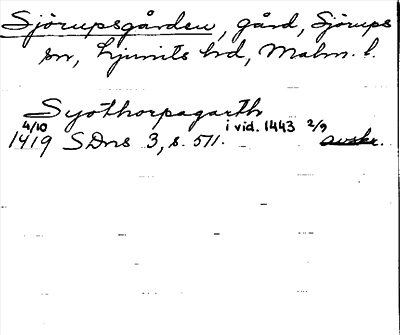 Sjörupsgården, gård, Sjörups
sn, Ljunits hd, Malm. l.
Syothorpagarth
4/10 i vid. 1443 2/9
1419 SDns 3, s. 511. avskr.